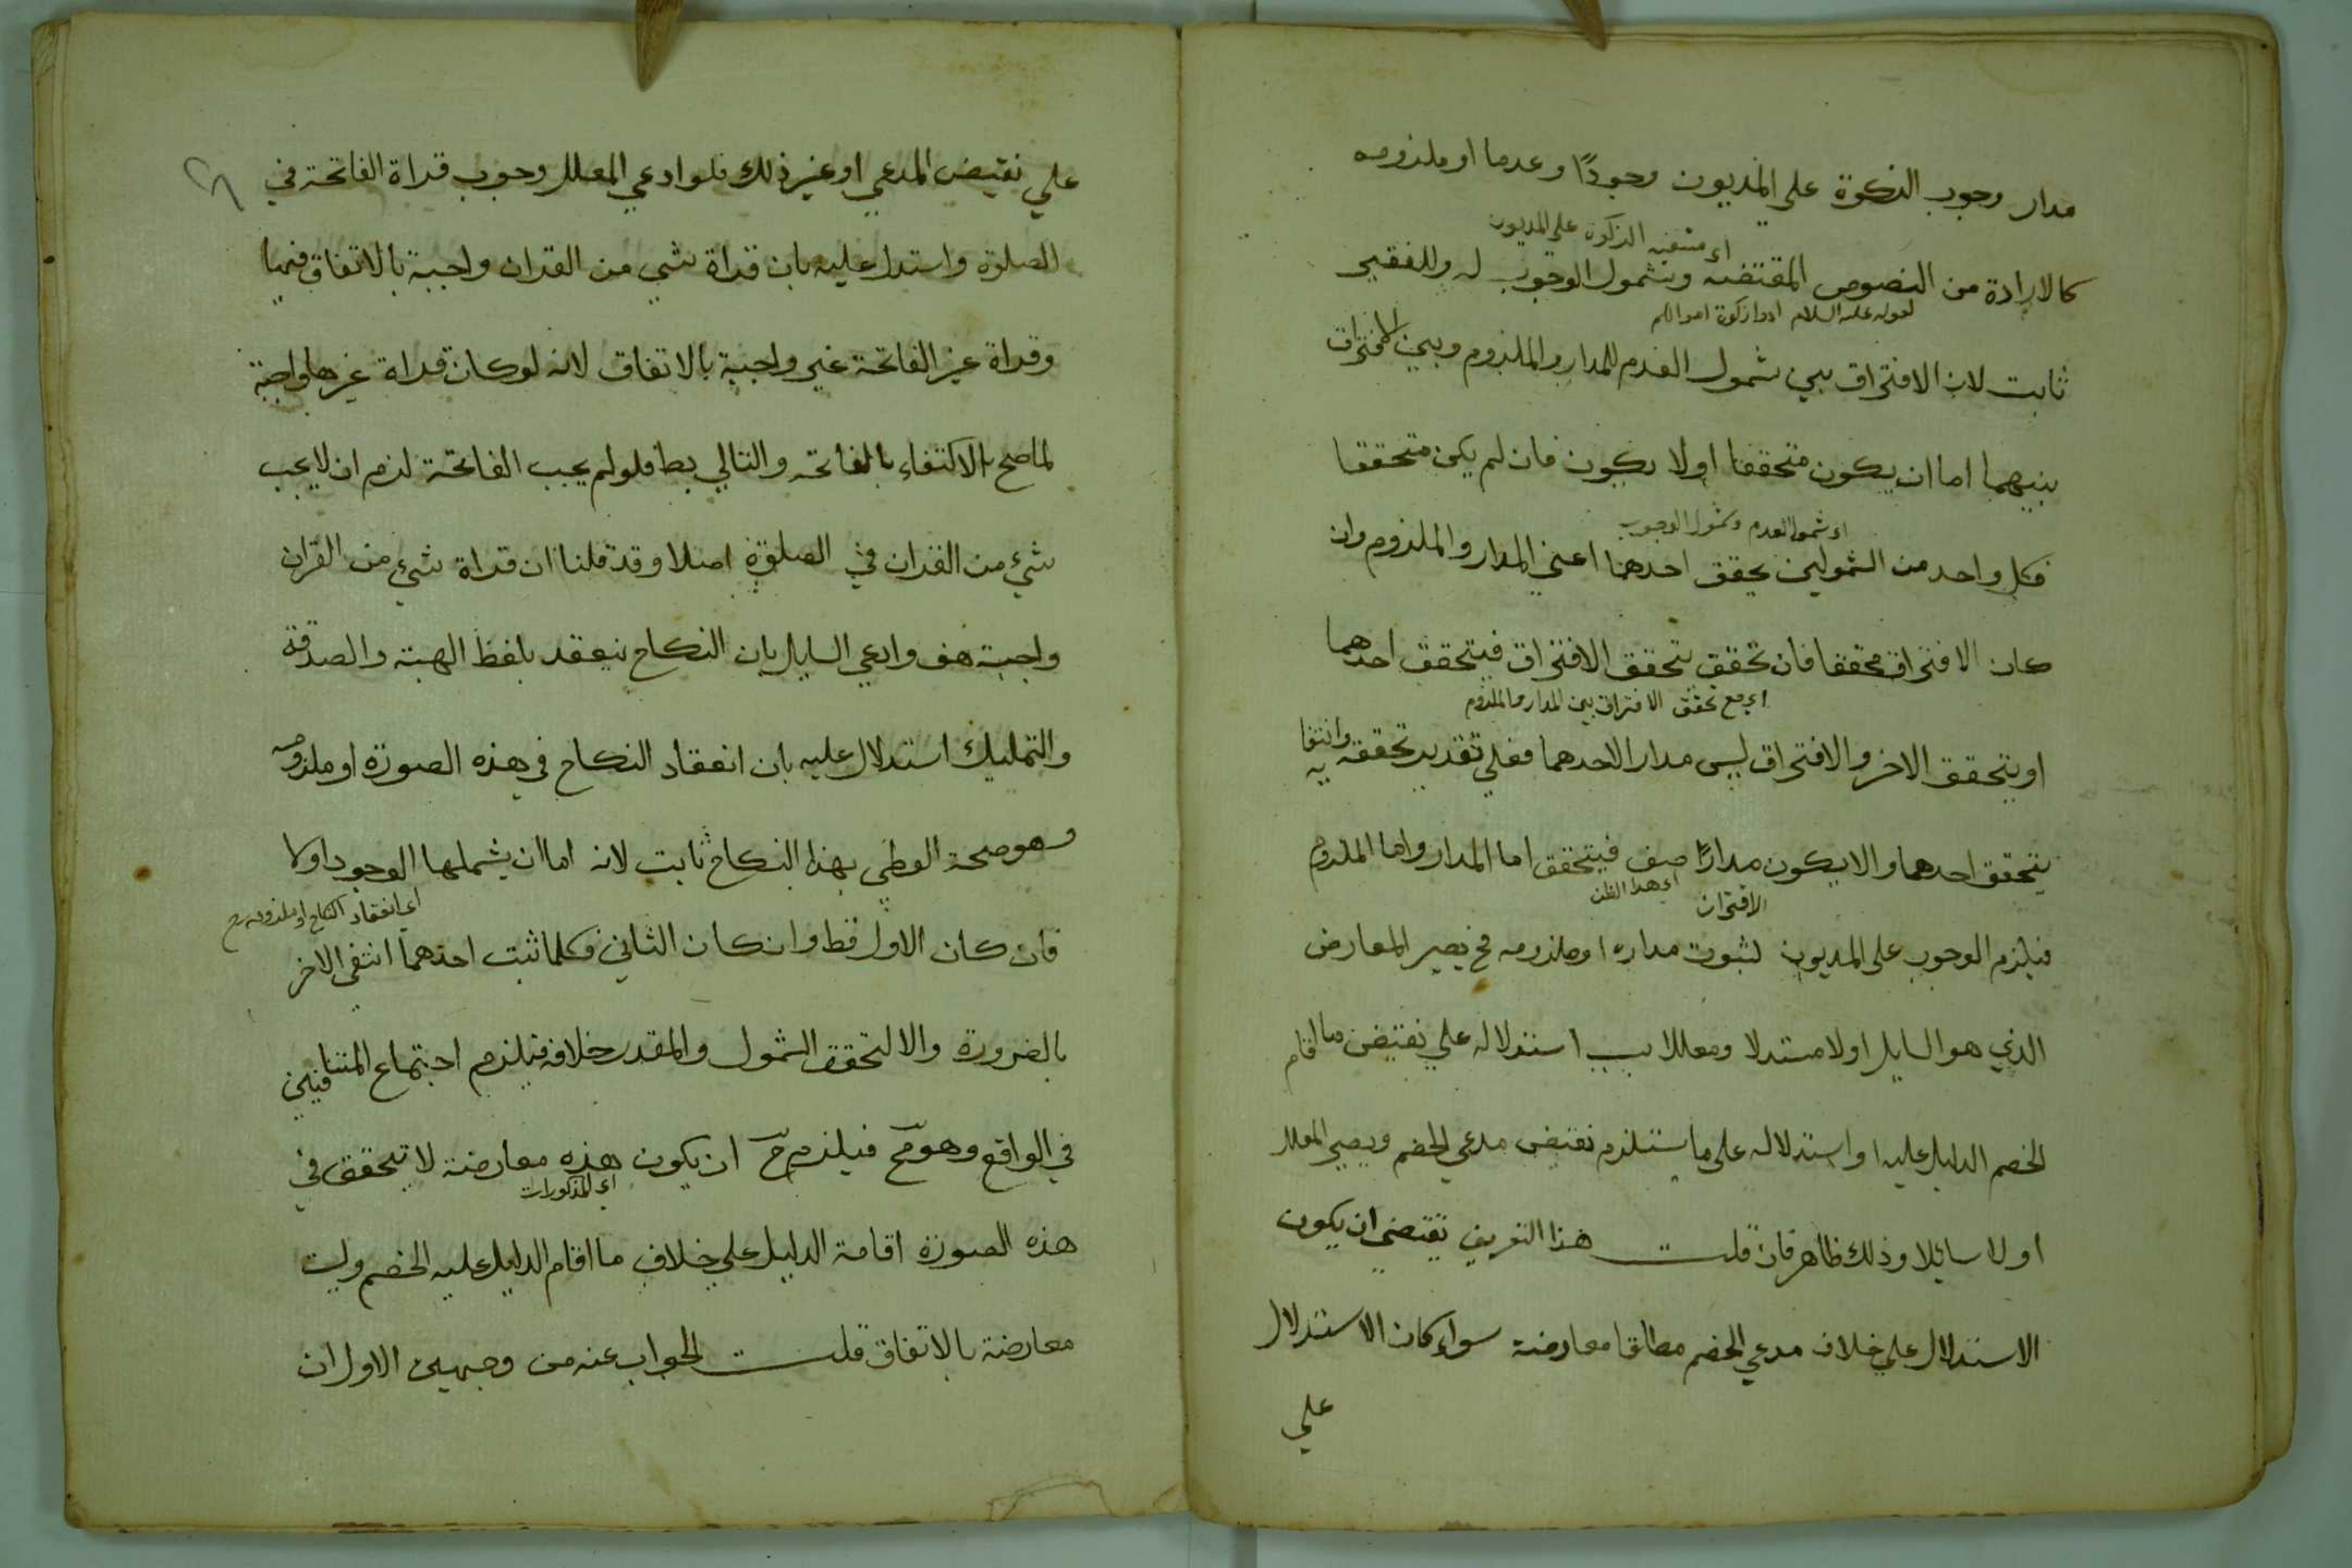 مدار وجوب الزكوة على المديون وجودًا وعدما او ملزومه
اي مقتضية الزكوة على المديون
كالارادة من النصوص المقتضية وبشمول الوجوب له وللفقير
لقوله عليه السلام ادوا زكوة اموالكم
ثابت لان الافتراق بين شمول العدم للمدار والملزوم وبين الافتراق
بينهما اما ان يكون متحققا او لا يكون فان لم يكن متحققا
اي شمول العدم وشمول الوجوب
فكل واحد من الشمولين يحقق احدهما اعني المدار والملزوم وان
كان الافتراق محققا فان تحقق بتحقق الافتراق فيتحقق احدهما
اي مع تحقق الافتراق بين المدار والملزوم
او يتحقق الاخر والافتراق ليس مدار الاحدهما فعلي تقدير تحققه وانتفائه
يتحقق احدهما والا يكون مدارًا صف فيتحقق اما المدار واما الملزوم
الافتراق
اي هذا الظن
فيلزم الوجوب على المديون لثبوت مداره او ملزومه فح يصير المعارض
الذي هو السايل اولا مستدلا ومعللا بـ استدلاله علي نقيض ما اقام
الخصم الدليل عليه او استدلاله على ما يستلزم نقيض مدعي الخصم ويصير المعلل
اولا سايلا وذلك ظاهر فان قلت هذا التعريف يقتضي ان يكون
الاستدلال علي خلاف مدعي الخصم مطلقا معارضة سواء كان الاستدلال
علي
علي نقيض المدعي او غير ذلك فلو ادعي المعلل وجوب قراة الفاتحة في
الصلوة واستدل عليه بان قراة شي من القران واجبة بالاتفاق فيها
وقراة غير الفاتحة غير واجبة بالاتفاق لانه لو كان قراة غيرها واجبة
لما صح الاكتفاء بالفاتحة والتالي بط فلو لم يجب الفاتحة لزم ان لا يجب
شيء من القران في الصلوة اصلا وقد قلنا ان قراة شيء من القران
واجبة هف وادعي السايل بان النكاح ينعقد بلفظ الهبة والصدقة
والتمليك استدلال عليه بان انعقاد النكاح في هذه الصورة او ملزومه
وهو صحة الوطي بهذا النكاح ثابت لانه اما ان يشملها الوجود اولا
اي انعقاد النكاح او ملزومه ح
فان كان الاول فظ وان كان الثاني فكلما ثبت احدهما انتفى الاخر
بالضرورة والا لتحقق الشمول والمقدر خلافه فيلزم اجتماع المتنافيين
في الواقع وهو مح فيلزم ح ان يكون هذه معارضة لا تتحقق في
اي المذكورات
هذه الصورة اقامة الدليل علي خلاف ما اقام الدليل عليه الخصم وليست
معارضة بالاتفاق قلت الجواب عنه من وجهين الاول ان